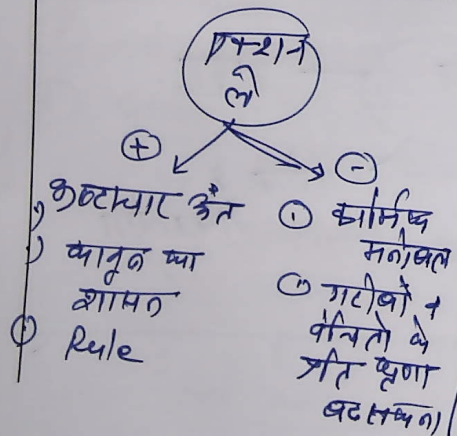 एक्शन
ले
+
-
भ्रष्टाचार अंत
कानून का
शासन
Rule
कार्मिक
मनोबल
गरीबों व
वंचितों के
प्रति घृणा
बढ़ सकना